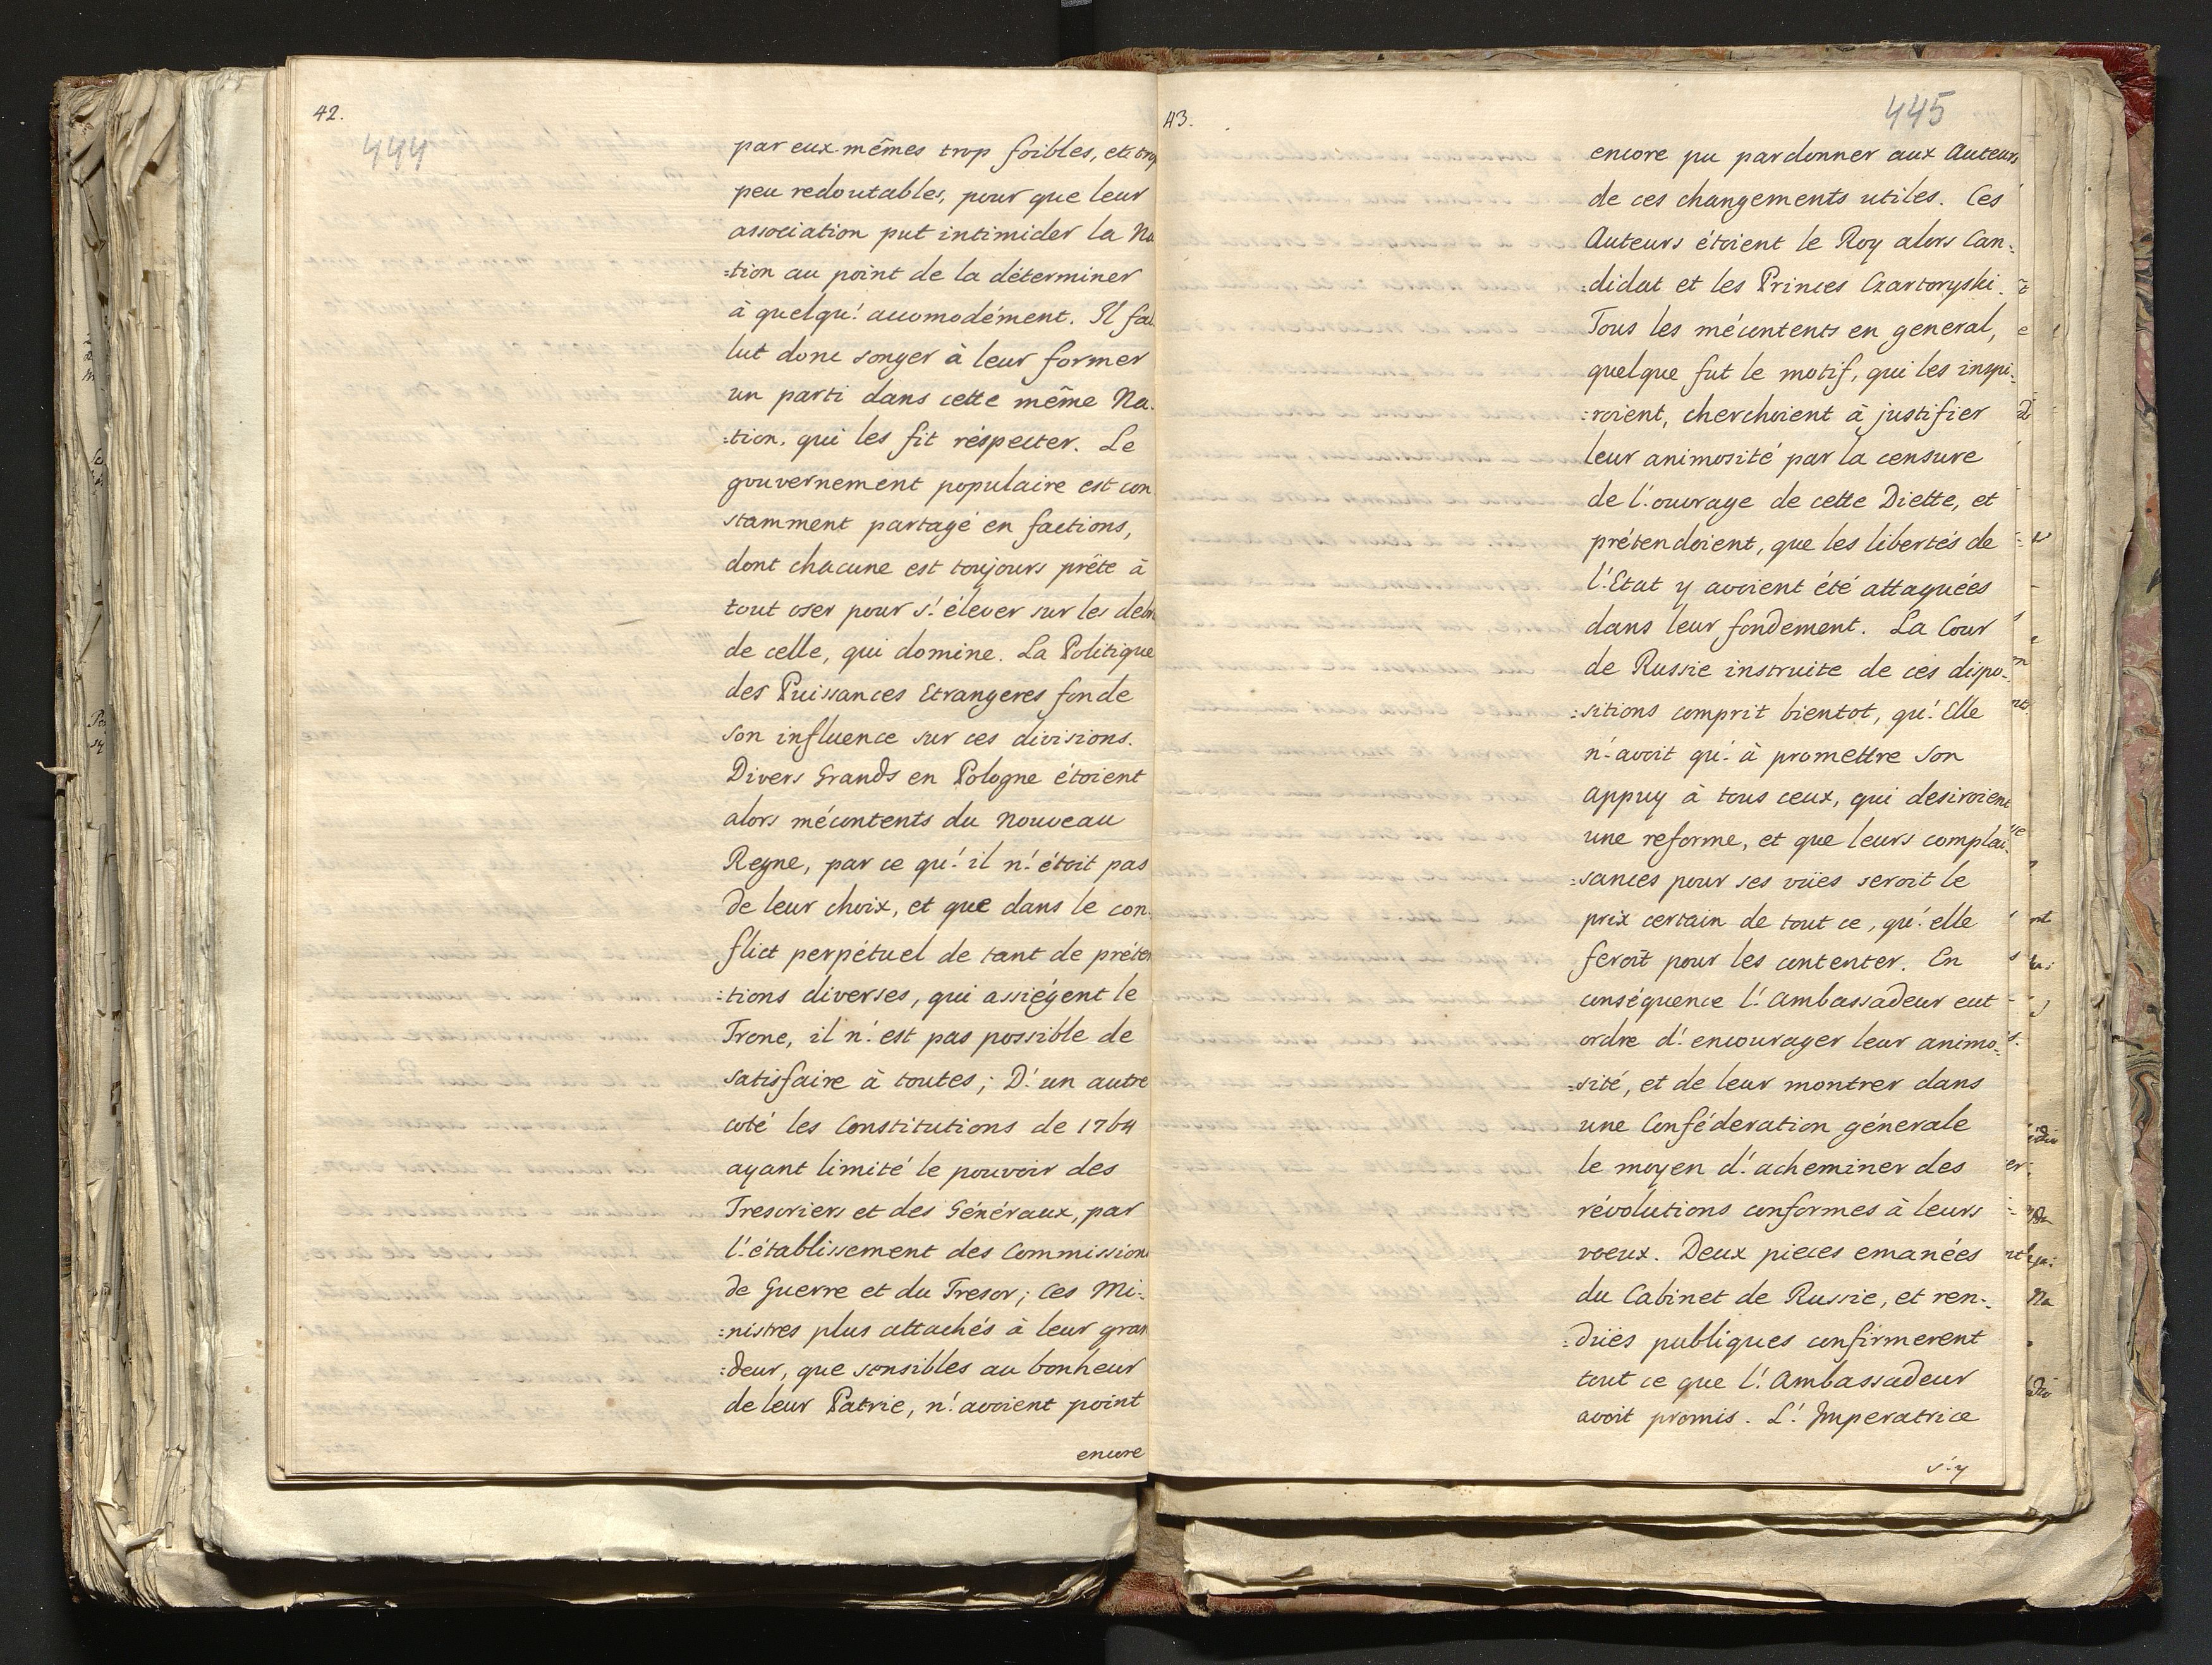 42.
444
par eux mêmes trop foibles, et trop
peu redoutables, pour que leur
association put intimider la Na
:tion au point de la déterminer
à quelqu'accomodément. Il fal
lut donc songer à leur former
un parti dans cette même Na:
:tion, qui les fit réspecter. Le
gouvernement populaire est con
stamment partagé en factions,
dont chacune est toujours prête à
tout oser pour s'élever sur les debri
de celle, qui domine. La Politique
des Puissances Etrangeres fonde
son influence sur ces divisions.
Divers Grands en Pologne étoient
alors mécontents du nouveau
Regne, par ce qu'il n'étoit pas
de leur choix, et que dans le con:
flict perpétuel de tant de préten
:tions diverses, qui assiégent le
Trone, il n'est pas possible de
satisfaire à toutes; D'un autre
coté les Constitutions de 1764
ayant limité le pouvoir des
Tresoriers et des Généraux, par
l'établissement des Commissions
de Guerre et du Tresor; Ces Mi:
:nistres plus attachés à leur gran
:deur, que sensibles au bonheur
de leur Patrie, n'avoient point
encore
43.
445
encore pu pardonner aux Auteurs
de ces changements utiles. Ces
Auteurs étoient le Roy alors Can:
:didat et les Princes Czartoryski.
Tous les mécontents en general,
quelque fut le motif, qui les inspi:
:roient, cherchoient à justifier
leur animosité par la censure
de l'ouvrage de cette Diette, et
prétendoient, que les libertés de
l'Etat y avoient été attaquées
dans leur fondement. La Cour
de Russie instruite de ces dispo:
:sitions comprit bientot, qu'Elle
n'avoit qu'à promettre son
appuy à tous ceux, qui desiroient
une reforme, et que leurs complai:
:sances pour ses vües seroit le
prix certain de tout ce, qu'elle
feroit pour les contenter. En
conséquence l'Ambassadeur eut
ordre d'encourager leur animo:
:sité, et de leur montrer dans
une Conféderation génerale
le moyen d'acheminer des
révolutions conformes à leurs
voeux. Deux pieces emanées
du Cabinet de Russie, et ren:
:düés publiques confirmerent
tout ce que l'Ambassadeur
avoit promis. L'Imperatrice
s'y